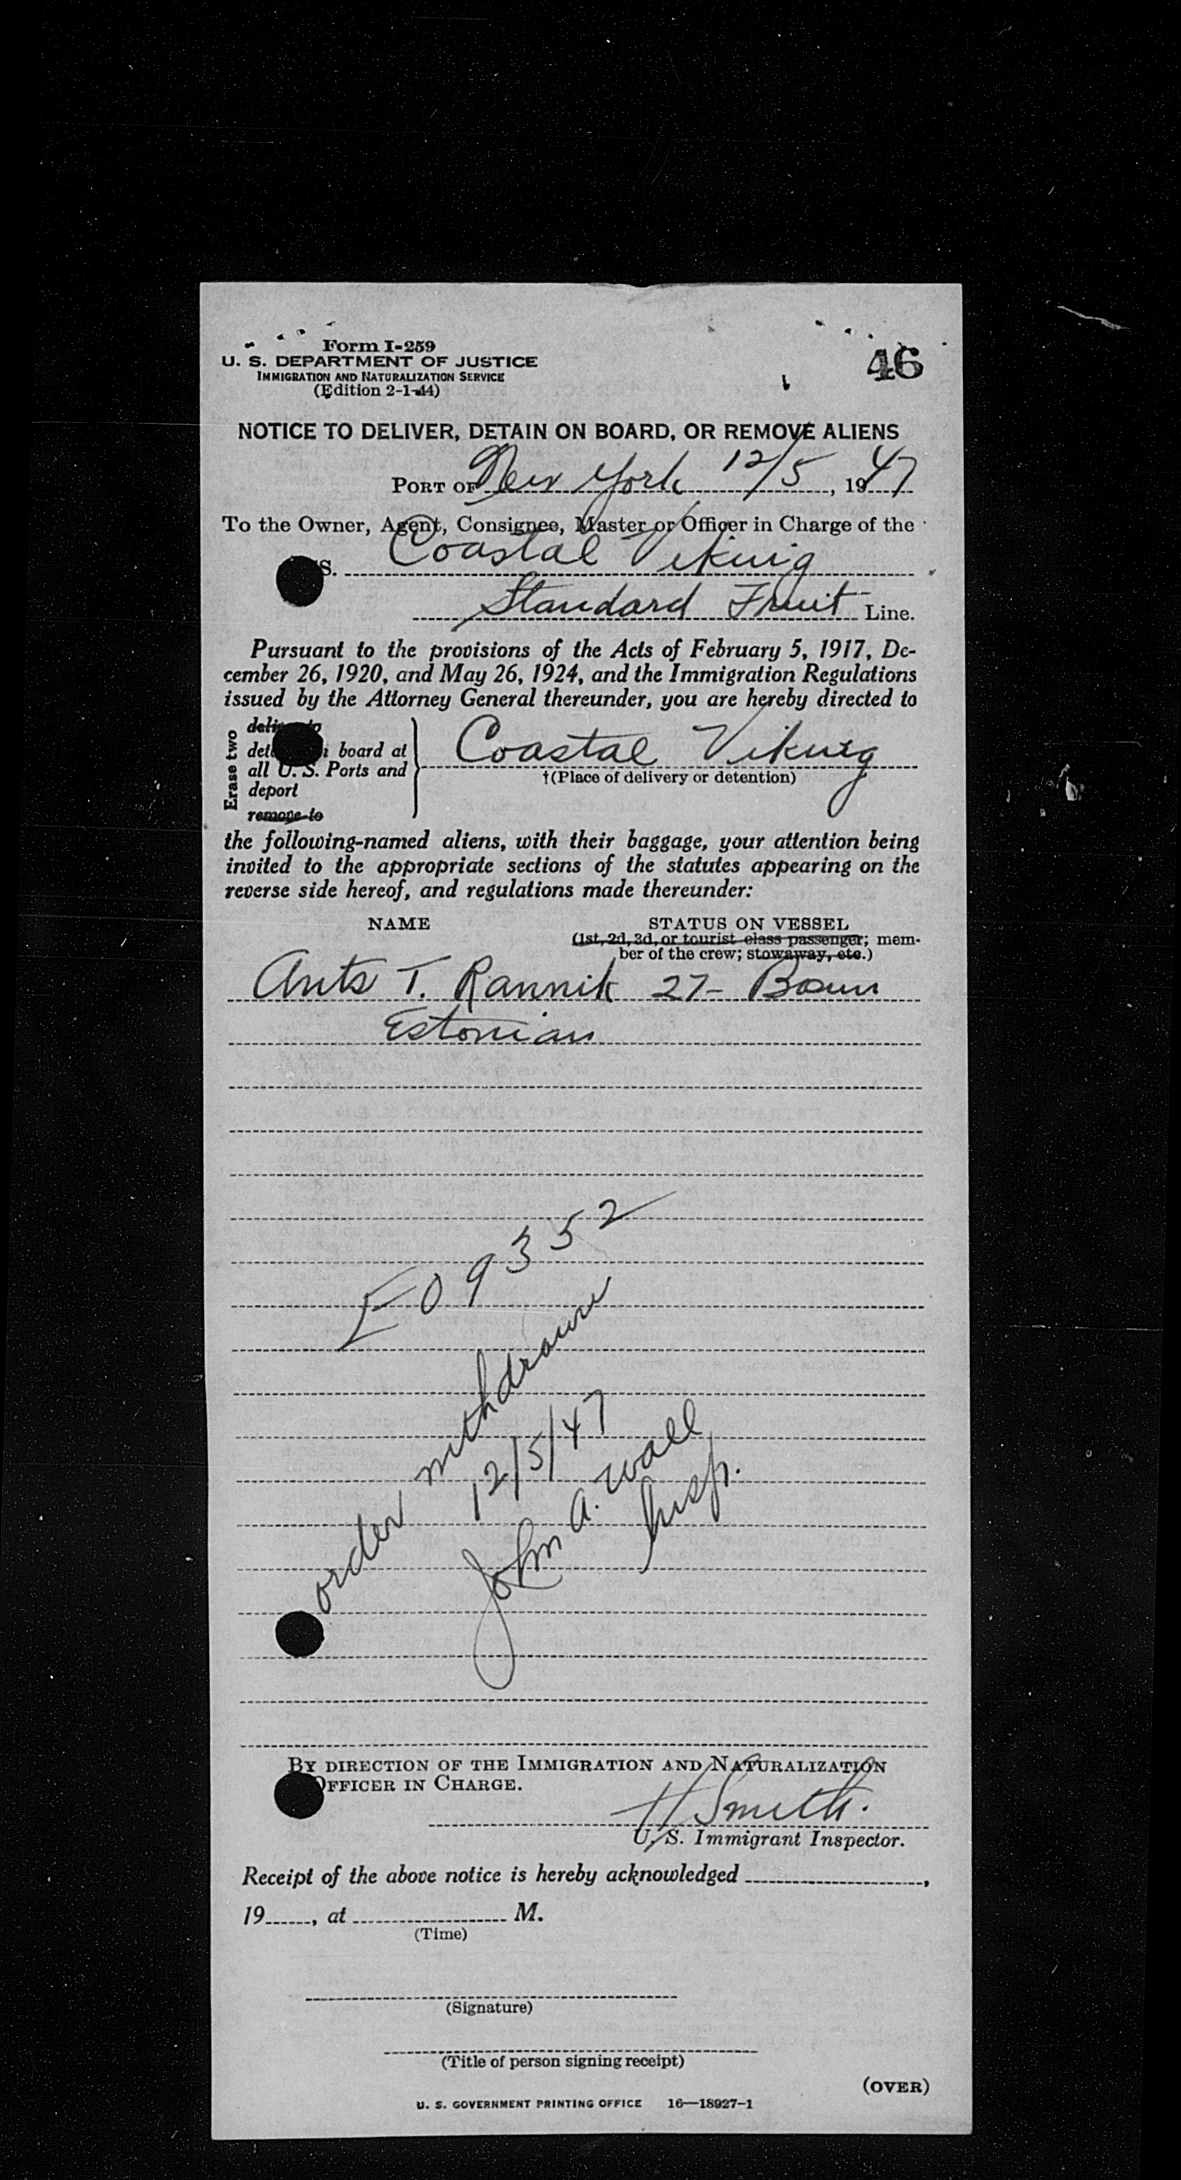 Form I-259
U. S. DEPARTMENT OF JUSTICE
IMMIGRATION AND NATURALIZATION SERVICE
(Edition 2-1-44)
46
NOTICE TO DELIVER, DETAIN ON BOARD, OR REMOVE ALIENS
PORT OF New York 12/5, 1947
To the Owner, Agent, Consignee, Master or Officer in Charge of the
S. Coastal Viking
Standard Fruit Line.
Pursuant to the provisions of the Acts of February 5, 1917, De-
cember 26, 1920, and May 26, 1924, and the Immigration Regulations
issued by the Attorney General thereunder, you are hereby directed to
Erase two
board at
all U. S. Ports and
deport
remove to
Coastal Viking
†(Place of delivery or detention)
the following-named aliens, with their baggage, your attention being
invited to the appropriate sections of the statutes appearing on the
reverse side hereof, and regulations made thereunder:
NAME STATUS ON VESSEL
(1st, 2d, 3d, or tourist class passenger; mem-
ber of the crew; stowaway, etc.)
Ants T. Rannik 27- Bosun
Estonian
E09352
order withdrawn
12/5/47
John A. Wall
Insp.
BY DIRECTION OF THE IMMIGRATION AND NATURALIZATION
OFFICER IN CHARGE.
H Smith.
U. S. Immigrant Inspector.
Receipt of the above notice is hereby acknowledged ,
19 , at M.
(Time)
(Signature)
(Title of person signing receipt)
(OVER)
U. S. GOVERNMENT PRINTING OFFICE 16—18927-1